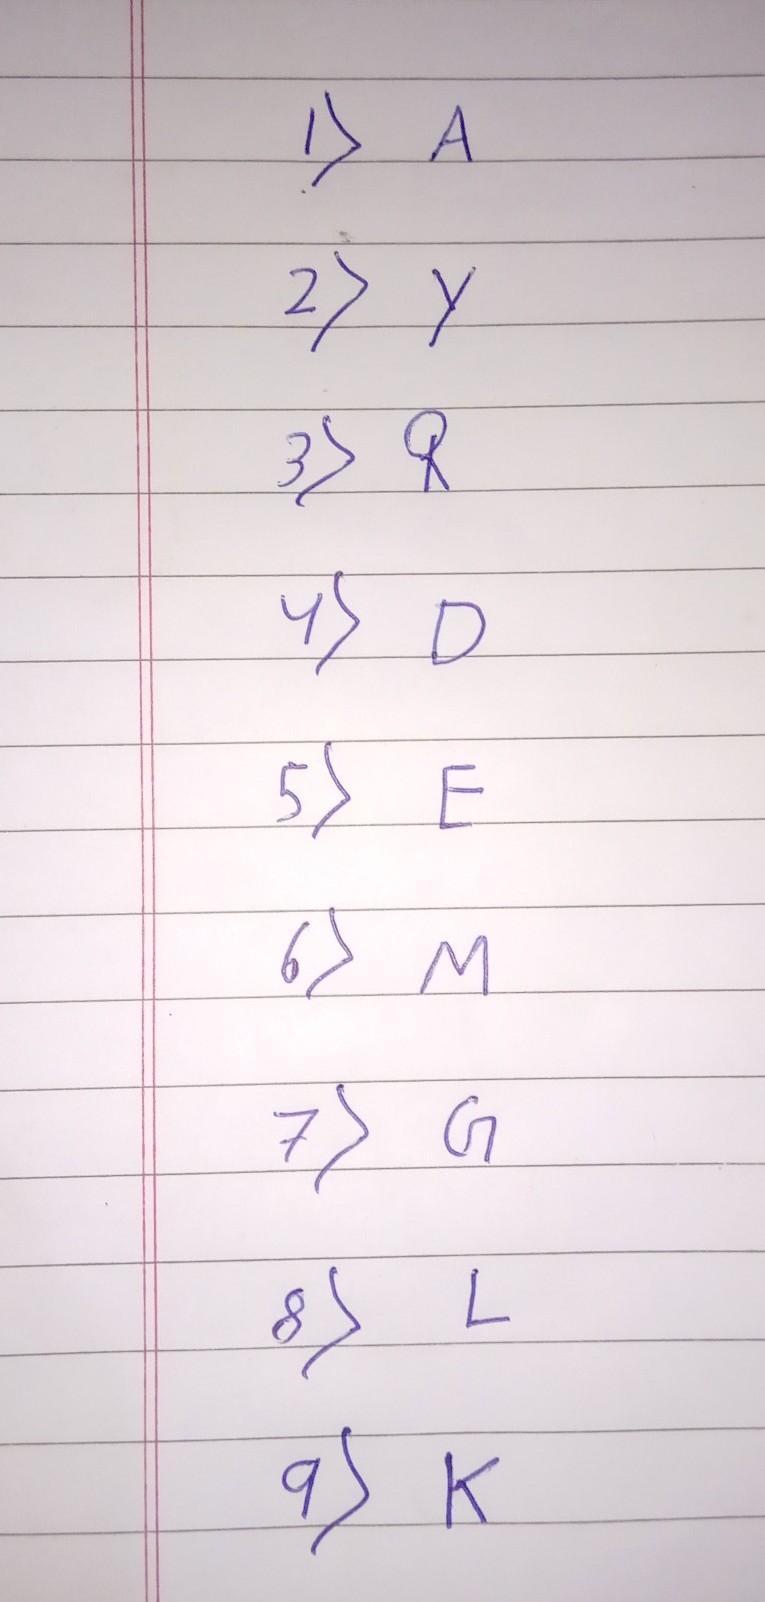 1) A
2) Y
3) R
4) D
5) E
6) M
7) G
8) L
9) K